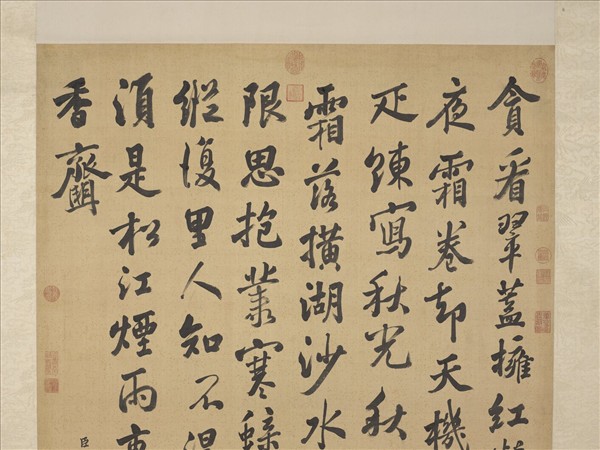 貪看翠蓋擁紅
夜霜卷却天機
疋練寫秋光秋
霜落撗湖沙水
限思抱叢寒蝶
縱復里人知不得
須是松江煙雨
香齏
臣